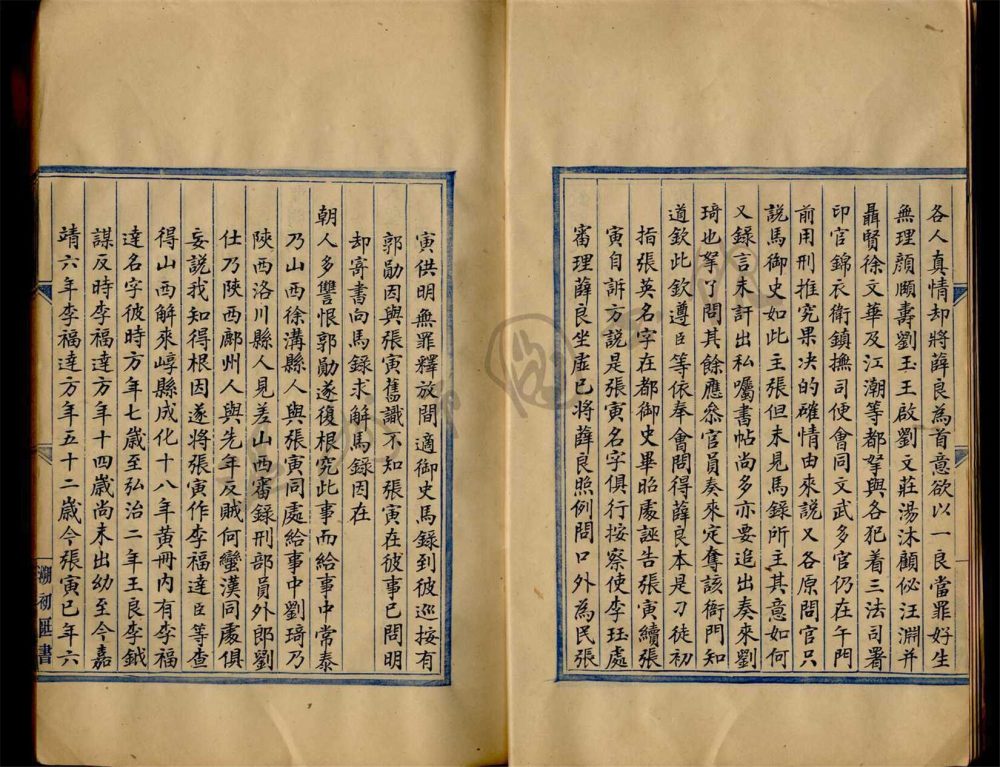 各人真情却將薛良為首意欲以一良當罪好生
無理顏頤壽劉玉王啟劉文莊湯沐顧佖汪淵并
聶賢徐文華及江潮等都拏與各犯着三法司署
印官錦衣衛鎮撫司使會同文武多官仍在午門
前用刑推究果决的確情由來說又各原問官只
說馬御史如此主張但未見馬錄所主其意如何
又錄言未訐出私囑書帖尚多亦要追出奏來劉
琦也拏了問其餘應叅官員奏來定奪該衙門知
道欽此欽遵臣等依奉會問得薛良本是刀徒初
指張英名字在都御史畢昭處誣告張寅續張
寅自訴方説是張寅名字俱行按察使李珏處
審理薛良坐虛已將薛良照例問口外為民張
寅供明無罪釋放間適御史馬錄到彼巡按有
郭勛因與張寅舊識不知張寅在彼事已問明
却寄書向馬錄求解馬錄因在
朝人多讐恨郭勛遂復根究此事而給事中常泰
乃山西徐溝縣人與張寅同處給事中劉琦乃
陜西洛川縣人見差山西審錄刑部員外郎劉
仕乃陜西鄜州人與先年反賊何蠻漢同處俱
妄説我知得根因遂將張寅作李福達臣等查
得山西解來崞縣成化十八年黃冊内有李福
達名字彼時方年七歲至弘治二年王良李鉞
謀反時李福達方年十四歲尚未出幼至今嘉
靖六年李福達方年五十二歲今張寅已年六
湖初匪書